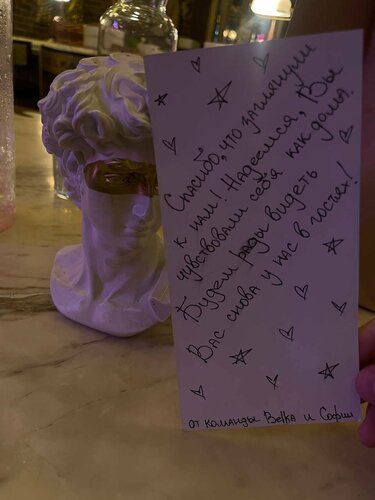 Спасибо, что заглянули
к нам! Надеемся, Вы
чувствовали себя как дома!
Будем рады видеть
Вас снова у нас в гостях!
от команды Belka и Софии